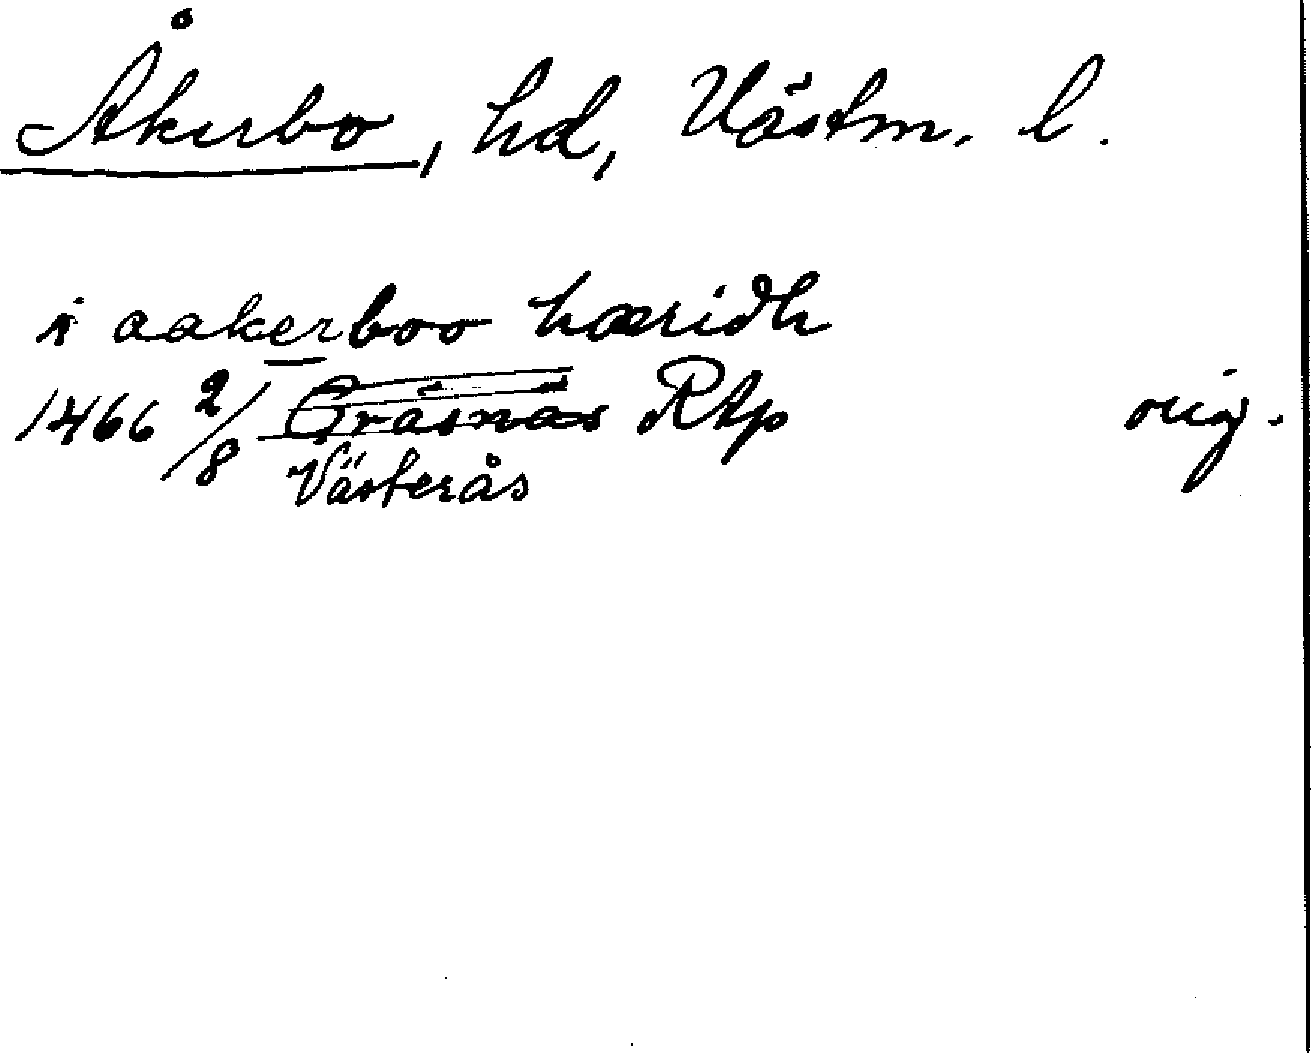 Åkerbo, hd, Västm. l.
i aakerboo hæridh
1466 2/8 Gräsnäs Rtp orig.
Västerås